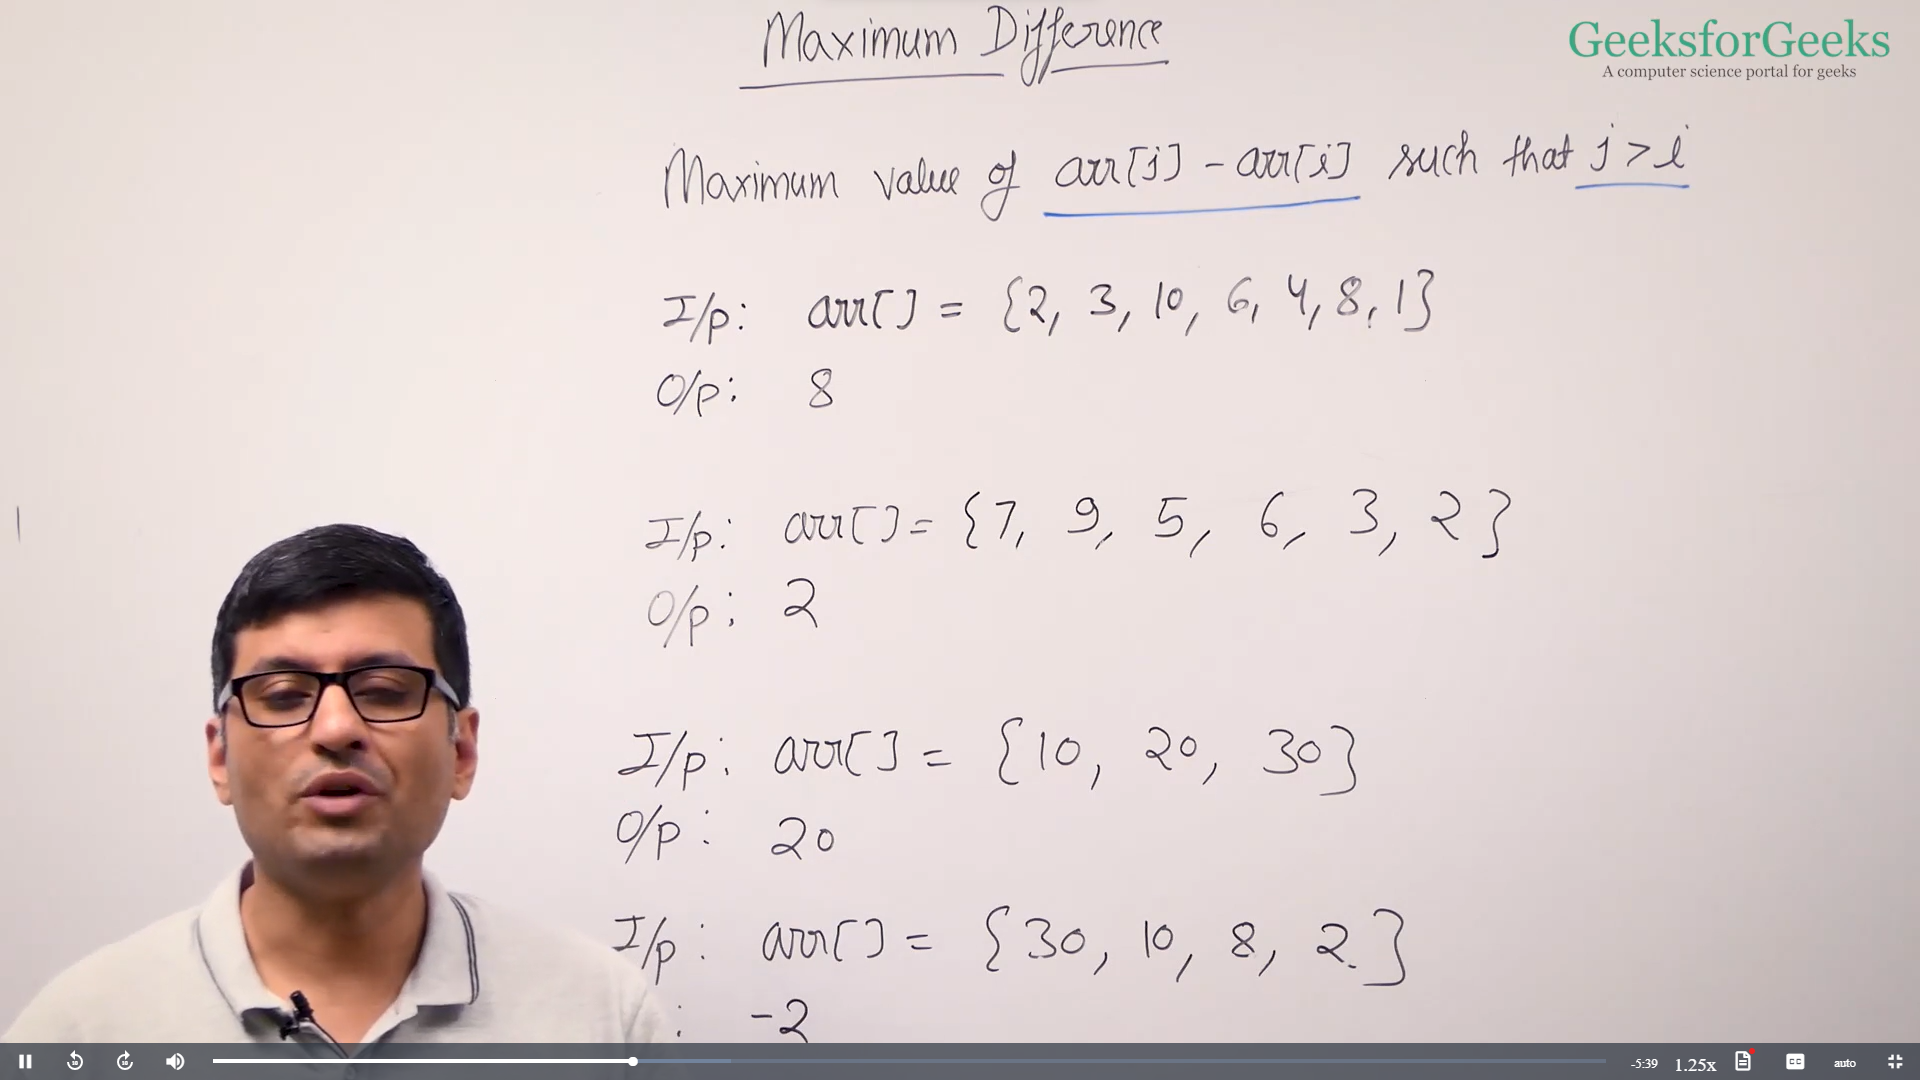 Maximum Difference
GeeksforGeeks
A computer science portal for geeks
Maximum value of arr[j] - arr[i] such that j > i
I/p: arr[] = {2, 3, 10, 6, 4, 8, 1}
O/p: 8
I/p: arr[] = {7, 9, 5, 6, 3, 2}
O/p: 2
I/p: arr[] = {10, 20, 30}
O/p: 20
I/p: arr[] = {30, 10, 8, 2}
: -2
10 10 -5:39 1.25x CC auto